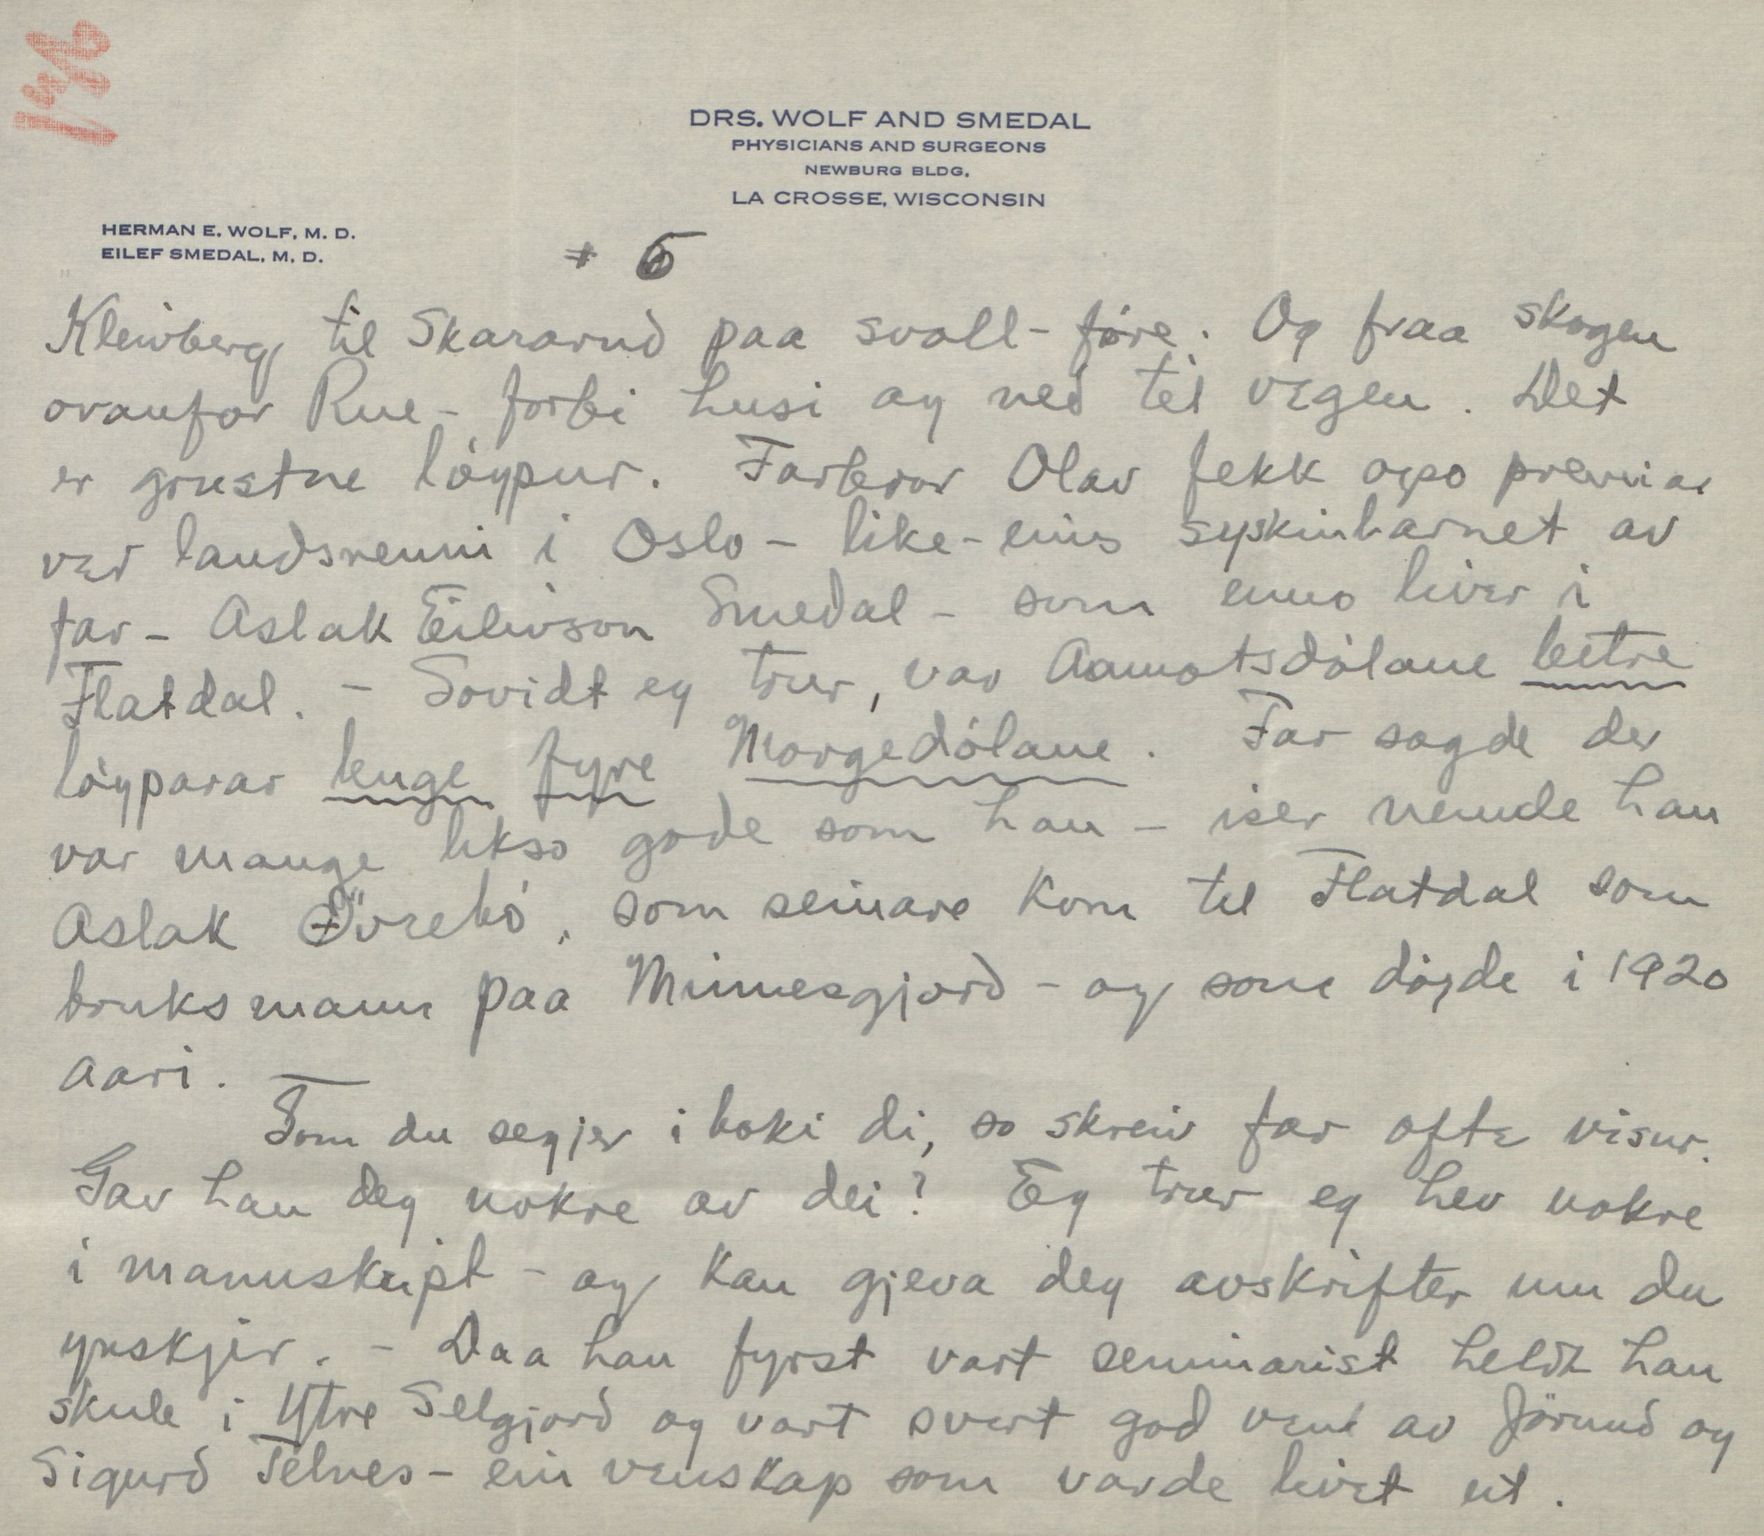 DRS. WOLF AND SMEDAL
PHYSICIANS AND SURGEONS
NEWBURG BLDG.
LA CROSSE, WISCONSIN
HERMAN E. WOLF, M. D.
EILEF SMEDAL, M. D.
# 6
Kleivberg til Skararud paa svall-före. Og fraa skogen
ovanfor Rue - forbi husi og ned til vegen. Det
er græstne löypur. Farbror Olav fekk ogso premiar
ved landsrenni i Oslo - like-eins syskinbarnet av
far - Aslak Eilivson Smedal - som enno liver i
Flatdal. - Sovidt eg trur, var Aamotsdölane betre
löyparar lenge fyre Morgedölane. Far sagde der
var mange likso gode som han - iser nemde han
Aslak Övrebö, som seinare kom til Flatdal som
bruksmann paa Minnesgjord - og som döyde i 1920
aari.
Som du segjer i boki di, so skreiv far ofte visur.
Gav han deg nokre av dei? Eg truer eg hev nokre
i manuskript - og kan gjeva deg avskrifter um du
ynskjer. - Daa han fyrst vart seminarist heldt han
skule i Ytre Selgjord og vart svært god ven av Jörund og
Sigurd Telnes - ein venskap som varde livet ut.